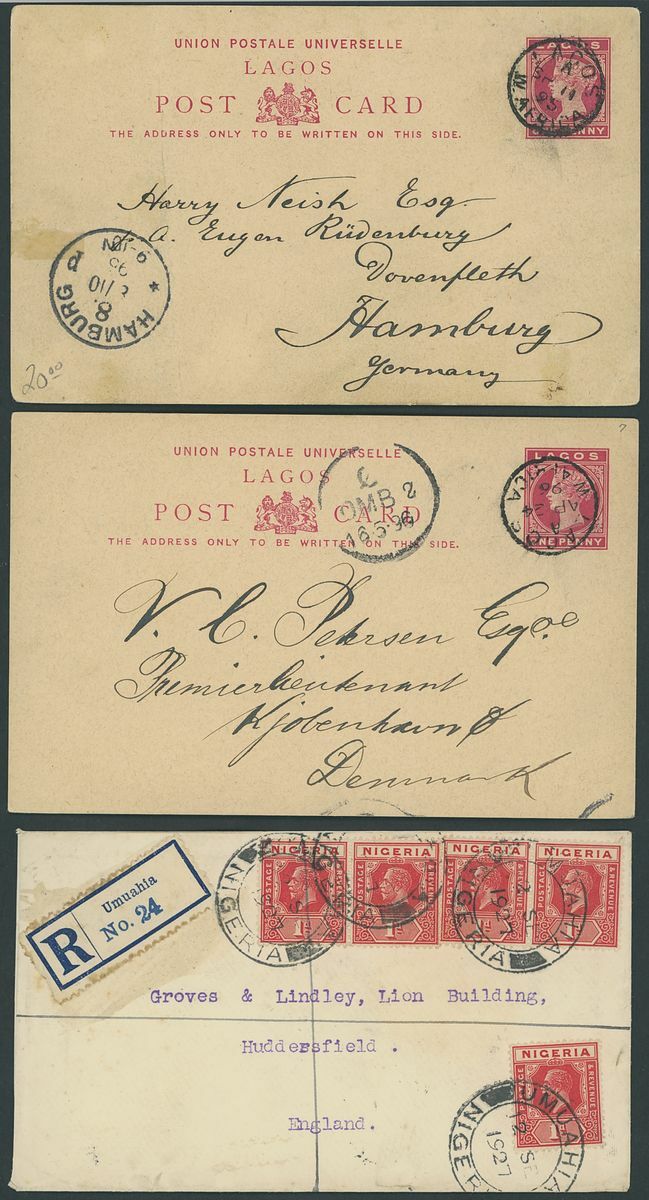 UNION POSTALE UNIVERSELLE
LAGOS
POST CARD
THE ADDRESS ONLY TO BE WRITTEN ON THIS SIDE.
LAGOS
W. AFRICA
Harry Neish Esq.
A. Eugen Rüdenburg
Dovenfleth
Hamburg
Germany
HAMBURG
8.
20.00
UNION POSTALE UNIVERSELLE
LAGOS
POST CARD
THE ADDRESS ONLY TO BE WRITTEN ON THIS SIDE.
LAGOS
ONE PENNY
AP 24
96
OMB 2
16.5.96
V. C. Petersen Esqre
Premierlieutenant
Kjobenhavn
Denmark
R
Umuahia
No. 24
NIGERIA
NIGERIA
NIGERIA
NIGERIA
POSTAGE & REVENUE
NIGERIA
1927
UMUAHIA
Groves & Lindley, Lion Building,
Huddersfield .
England.
NIGERIA
POSTAGE & REVENUE
1d
UMUAHIA
12 SE
1927
NIGERIA